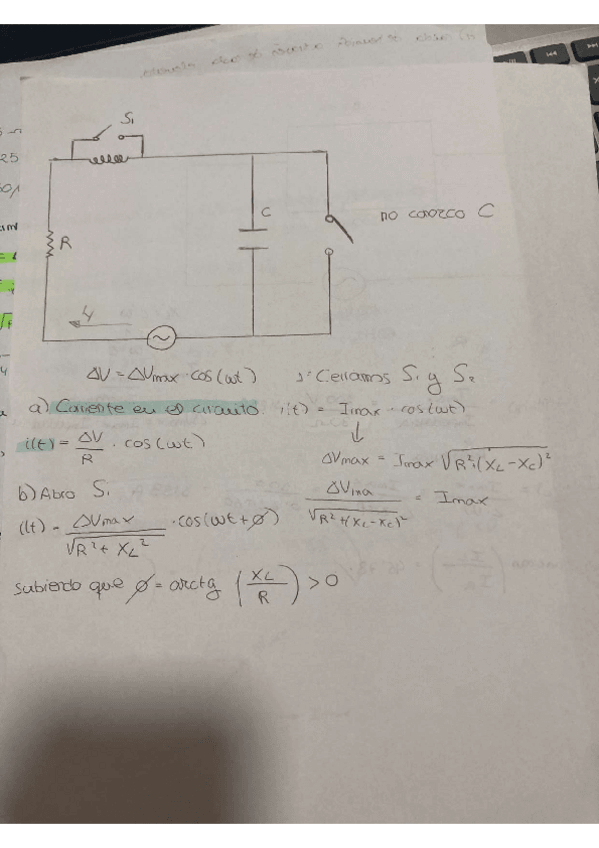 S₁
C
R
no conozco C
ΔV = ΔVmax · cos(ωt)
Cerramos S₁ y S₂
a) Corriente en el circuito. i(t) = Imax · cos(ωt)
i(t) = ΔV/R · cos(ωt)
↓
ΔVmax = Imax √R²+(XL-XC)²
b) Abro S₁
ΔVma/√R²+(XL-XC)² = Imax
i(t) = ΔVmax/√R²+XL² · cos(ωt+ø)
sabiendo que ø = arctg (XL/R) > 0